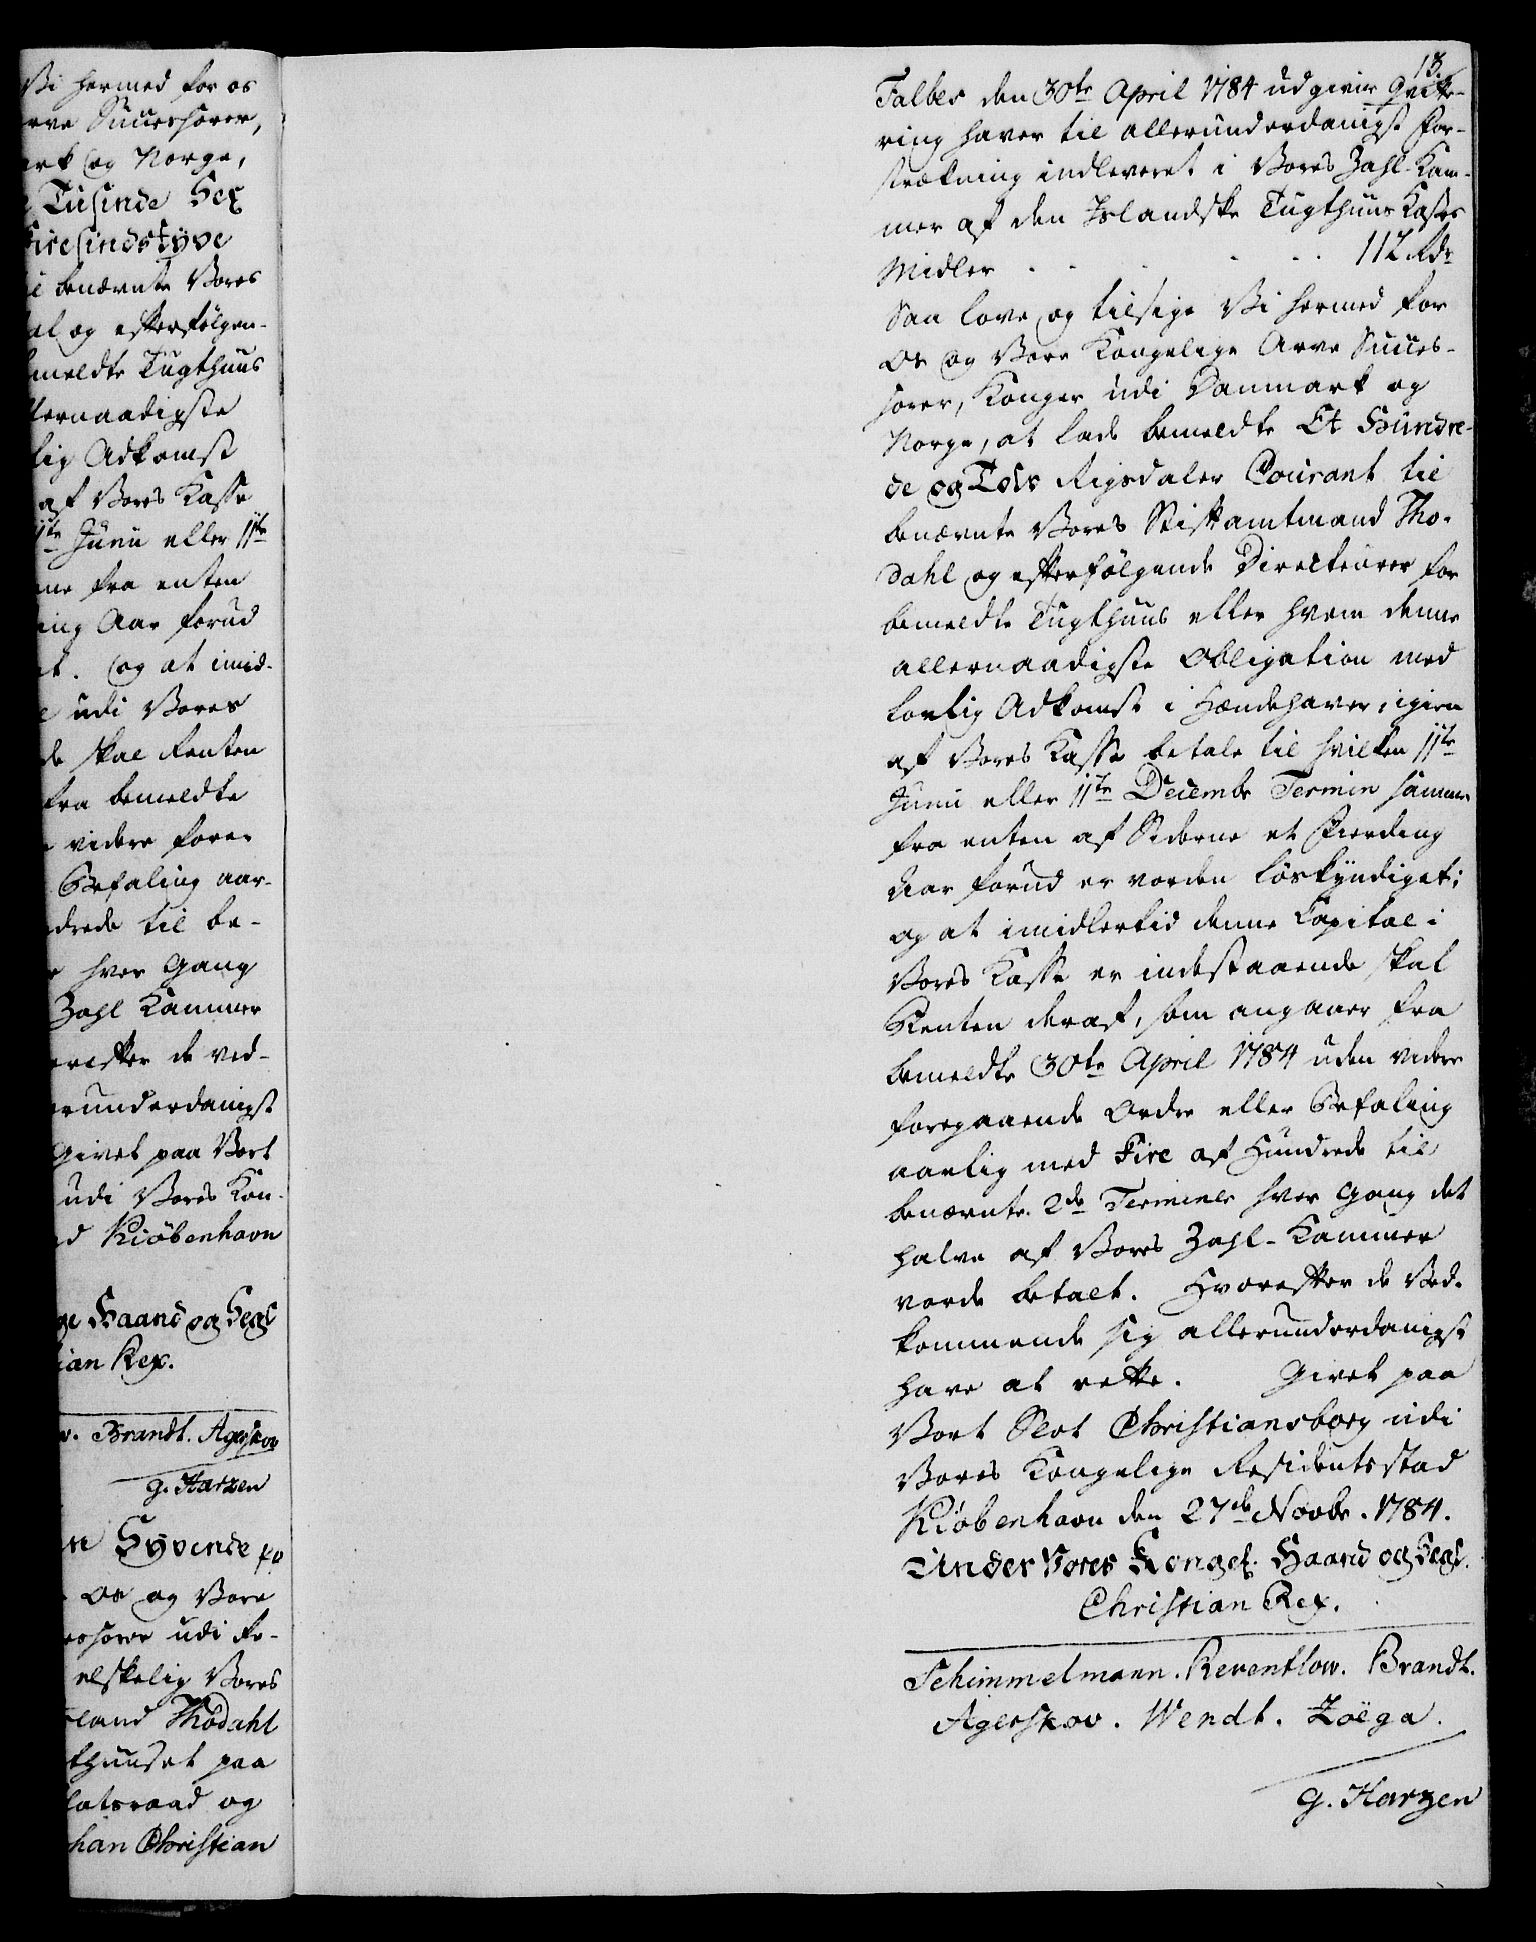 Vi hermed for os
rve Successorer,
ark og Norge,
Tusinde Sex
Firesindstyve
i benævnte Vores
al og efterfölgen-
meldte Tugthuus
lernaadigste
lig Adkomst
af Vores Kasse
11te Junii eller 11te
me fra enten
ing Aar forud
et. Og at imid-
e udi Vores
de skal Renten
fra bemeldte
videre fore-
Befaling aar-
drede til be-
hver Gang
Zahl Kammer
erefter de ved-
erunderdanigst
Givet paa Vort
udi Vores Kon-
d Kiöbenhavn
ge Haand og Segl
ian Rex.
w. Brandt. Agerskov
G. Harzen
n Syvende p.
Os og Vore
essorer udi Re-
elskelig Vores
land Thodahl
thuuset paa
latsraad og
han Christian
13.
Falbes den 30te April 1784 udgivin Qvitte-
ring haver til allerunderdanigst For-
strækning indleveret i Vores Zahl-Kam-
mer af den Islandske Tugthuus Kasses
Midler . . . . . . 112 Rdr
Saa love og tilsige Vi hermed for
Os og Vore Kongelige Arve Succes-
sorer, Konger udi Danmark og
Norge, at lade bemeldte Et Hundre-
de og Tolv Rigsdaler Courant til
benævnte Vores Stiftamtmand Tho-
dahl og efterfölgende Directeurer for
bemeldte Tugthuus eller hvem denne
allernaadigste Obligation med
lovlig Adkomst i Hændehaver, igien
af Vores Kasse betale til hvilken 11te
Junii eller 11te Decembr Termin samme
fra enten af Siderne et Fierding
Aar forud er vorden löskyndiget;
og at imidlertid denne Capital i
Vores Kasse er indestaaende skal
Renten deraf, som angaaer fra
bemeldte 30te April 1784 uden videre
foregaaende Ordre eller Befaling
aarlig med Fire af Hundrede til
benævnte 2de Terminer hver Gang det
halve af Vores Zahl-Kammer
vorde betalt. Hvorefter de Ved-
kommende sig allerunderdanigst
have at rette. Givet paa
Vort Slot Christiansborg udi
Vores Kongelige Residentsstad
Kiöbenhavn den 27de Novbr. 1784.
Under Vores Kongel. Haand og Segl.
Christian Rex.
Schimmelmann. Reventlow. Brandt.
Agerskov. Wendt. Zoëga.
G. Harzen